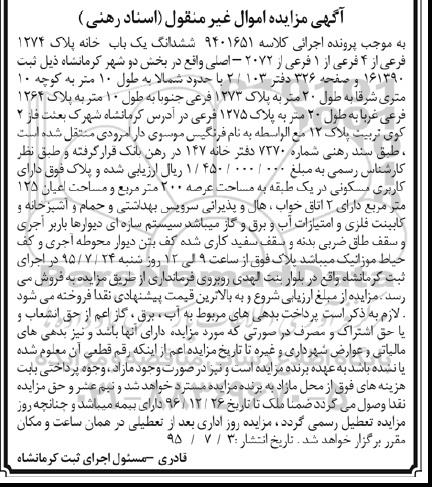 آگهی مزایده اموال غیر منقول (اسناد رهنی)
به موجب پرونده اجرائی کلاسه ۹۴۰۱۶۵۱ ششدانگ یک باب خانه پلاک ۱۲۷۴
فرعی از ۴ فرعی از ۱ فرعی از ۲۰۷۲ – اصلی واقع در بخش دو شهر کرمانشاه ذیل ثبت
۱۶۱۳۹۰ و صفحه ۳۲۶ دفتر ۲/۱۰۳ با حدود شمالا به طول ۱۰ متر به کوچه ۱۰
متری شرقا به طول ۲۰ متر به پلاک ۱۲۷۳ فرعی جنوبا به طول ۱۰ متر به پلاک ۱۲۶۴
فرعی غربا به طول ۲۰ متر به پلاک ۱۲۷۵ فرعی در آدرس کرمانشاه شهرک بعثت فاز ۲
کوی تربیت پلاک ۱۲ مع الواسطه به نام فرنگیس موسوی دار امرودی منتقل شده است
طبق سند رهنی شماره ۷۲۷۰ دفتر خانه ۱۴۷ در رهن بانک قرار گرفته و طبق نظر
کارشناس رسمی به مبلغ ۱/۴۵۰/۰۰۰/۰۰۰ ریال ارزیابی شده و پلاک فوق دارای
کاربری مسکونی در یک طبقه به مساحت عرصه ۲۰۰ متر مربع و مساحت اعیان ۱۲۵
متر مربع دارای ۲ اتاق خواب ، هال و پذیرائی سرویس بهداشتی و حمام و آشپزخانه و
کابینت فلزی و امتیازات آب و برق و گاز میباشد سیستم سازه ای دیوارها باربر آجری
و سقف طاق ضربی بدنه و سقف سفید کاری شده کف بتن دیوار محوطه آجری و کف
حیاط موزائیک میباشد پلاک فوق از ساعت ۹ الی ۱۲ روز شنبه ۹۵/۷/۲۴ در اجرای
ثبت کرمانشاه واقع در بلوار بنت الهدی روبروی فرمانداری از طریق مزایده به فروش می
رسد. مزایده از مبلغ ارزیابی شروع و به بالاترین قیمت پیشنهادی نقدا فروخته می شود
. لازم به ذکر است پرداخت بدهی های مربوط به آب ، برق ، گاز اعم از حق انشعاب و
یا حق اشتراک و مصرف در صورتی که مورد مزایده دارای آنها باشد و نیز بدهی های
مالیاتی و عوارض شهرداری و غیره تا تاریخ مزایده اعم از اینکه رقم قطعی آن معلوم شده
یا نشده باشد به عهده برنده مزایده است و نیز در صورت وجود مازاد ، وجوه پرداختی بابت
هزینه های فوق از محل مازاد به برنده مزایده مسترد خواهد شد و نیم عشر و حق مزایده
نقدا وصول می گردد ضمنا ملک تا تاریخ ۹۶/۱۲/۲۶ دارای بیمه میباشد و چنانچه روز
مزایده تعطیل رسمی گردد ، مزایده روز اداری بعد از تعطیلی در همان ساعت و مکان
مقرر برگزار خواهد شد . تاریخ انتشار :۳ / ۷ / ۹۵
قادری –مسئول اجرای ثبت کرمانشاه